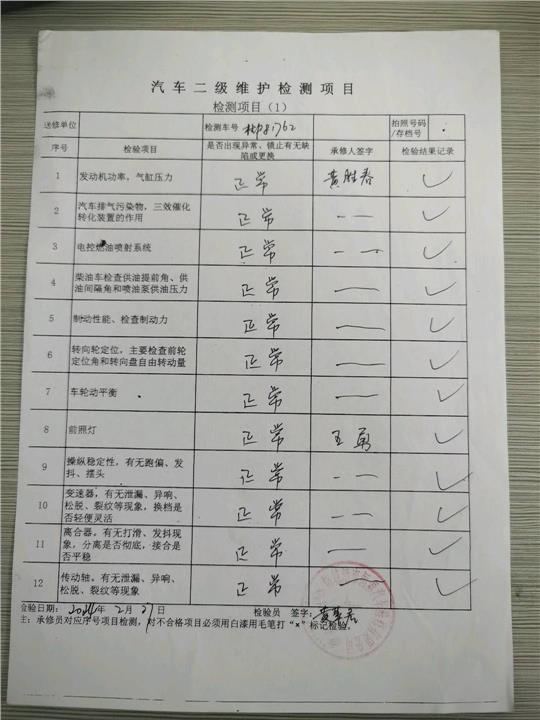 汽车二级维护检测项目
检测项目（1）
送修单位 检测车号 拍照号码/存档号
序号 检验项目 是否出现异常、锁止有无缺陷或更换 承修人签字 检验结果记录
1 发动机功率，气缸压力 正常 黄胜春 ✓
2 汽车排气污染物，三效催化转化装置的作用 正常 — — ✓
3 电控燃油喷射系统 正常 — — ✓
4 柴油车检查供油提前角、供油间隔角和喷油泵供油压力 正常 — — ✓
5 制动性能、检查制动力 正常 — — ✓
6 转向轮定位，主要检查前轮定位角和转向盘自由转动量 正常 — — ✓
7 车轮动平衡 正常 — — ✓
8 前照灯 正常 王勇 ✓
9 操纵稳定性，有无跑偏、发抖、摆头 正常 — — ✓
10 变速器，有无泄漏、异响、松脱、裂纹等现象，换档是否轻便灵活 正常 — — ✓
11 离合器。有无打滑、发抖现象，分离是否彻底，接合是否平稳 正常 — — ✓
12 传动轴。有无泄漏、异响、松脱、裂纹等现象 正常 — — ✓
检验日期： 年 2 月 27 日 检验员 签字：
注：承修员对应序号项目检测，对不合格项目必须用白漆用毛笔打“×”标记检验。